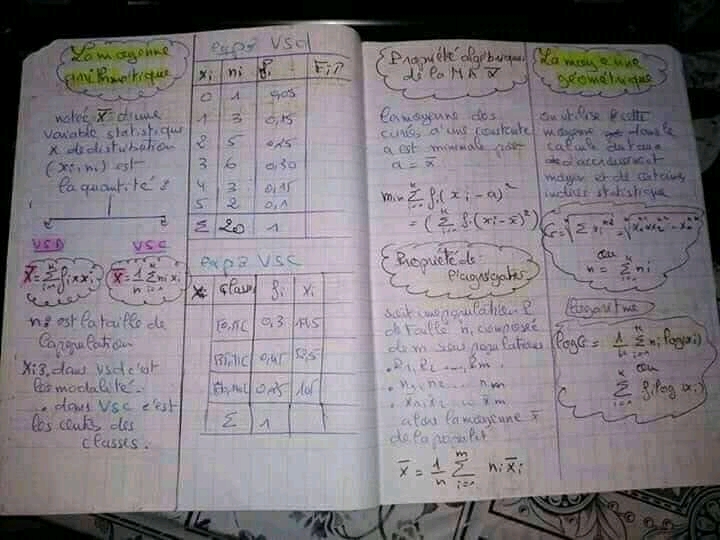 La moyenne
arithmétique
notée X̄ d'une
variable statistique
X de distribution
(xi, ni) est
la quantité :
VSD VSC
X̄ = Σ fi × xi
X̄ = 1/n Σ ni xi
n : est la taille de
la population
xi : dans vsd c'est
les modalité.
. dans VSC c'est
les cents des
classes.
exp : VSd
xi ni fi
0 1 0,05
1 3 0,15
2 5 0,25
3 6 0,30
4 3 0,15
5 2 0,1
Σ 20 1
exp : VSC
Class fi xi
0,3
0,45
0,25
Σ 1
Propriété algébrique
de la MA X̄
la moyenne des
carrés d'une constante
a est minimale pour
a = x̄
min Σ fi (xi - a)²
= (Σ fi (xi - x̄)²)
Propriété de
l'agrégates
soit une population P
de taille n, composée
de m sous populations
. P1, P2 ..., Pm.
. n1, n2 ... nm
. x̄1, x̄2 ... x̄m
alors la moyenne x̄
de la
x̄ = 1/n Σ ni x̄i
La moyenne
géométrique
on utilise cette
moyenne dans le
calcule du taux
d'accroissement
moyen et de certains
indices statistique
ou
n = Σ ni
Logarithme
log G = 1/n Σ ni log(xi)
ou
Σ fi log(xi)